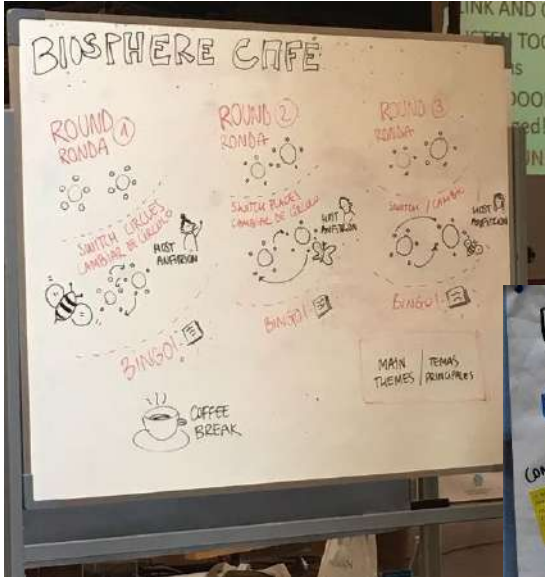 BIOSPHERE CAFE
ROUND 1
RONDA
SWITCH CIRCLES
CAMBIAR DE CÍRCULO
HOST
ANFITRION
BINGO!
ROUND 2
RONDA
SWITCH PLACES
CAMBIAR DE CÍRCULO
HOST
ANFITRION
BINGO!
ROUND 3
RONDA
SWITCH / CAMBIO
HOST
ANFITRION
BINGO!
MAIN THEMES / TEMAS PRINCIPALES
COFFEE
BREAK
INK AND